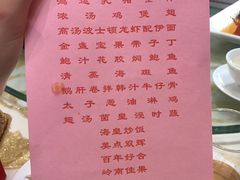 浓汤鸡煲翅
高汤波士顿龙虾配伊面
金盏宝果带子丁
鲍汁花胶焖鲍鱼
清蒸海斑鱼
鹅肝卷拌韩汁牛仔骨
太子葱油淋鸡
翅汤菌皇浸时蔬
海皇炒饭
美点双辉
百年好合
岭南佳果